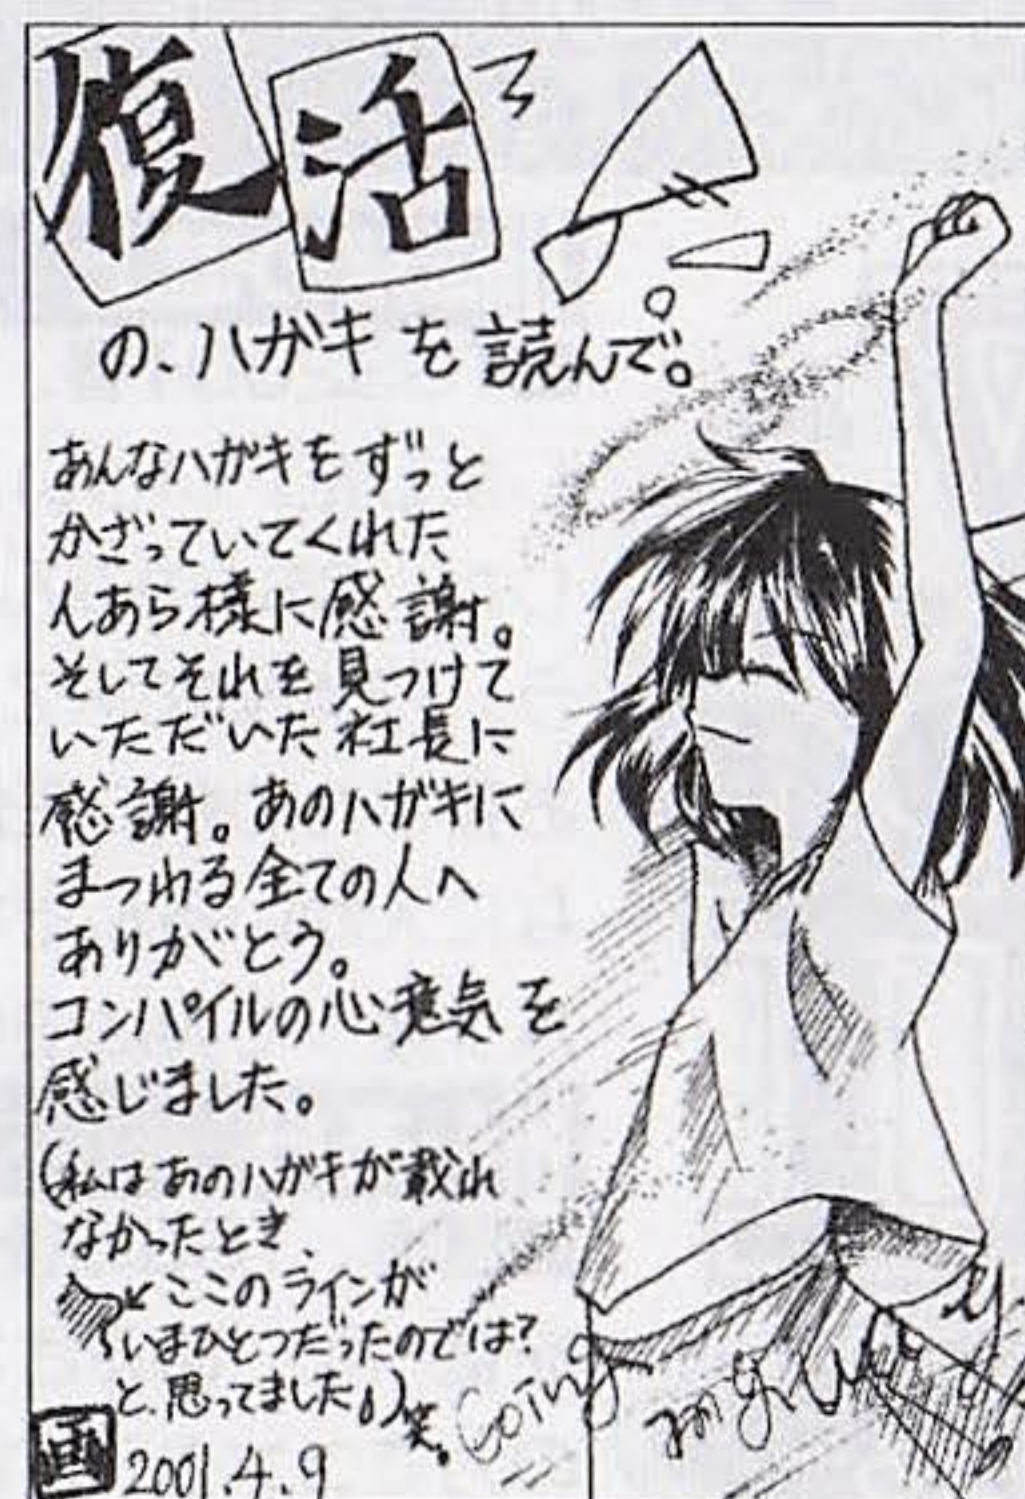 復活
の、ハガキを読んで。
あんなハガキをずっと
かざっていてくれた
んあら様に感謝。
そしてそれを見つけて
いただいた社長に
感謝。あのハガキに
まつわる全ての人へ
ありがとう。
コンパイルの心意気を
感じました。
(私はあのハガキが載れ
なかったとき、
ここのラインが
いまひとつだったのでは?
と、思ってました)笑。
画 2001.4.9
Going my way